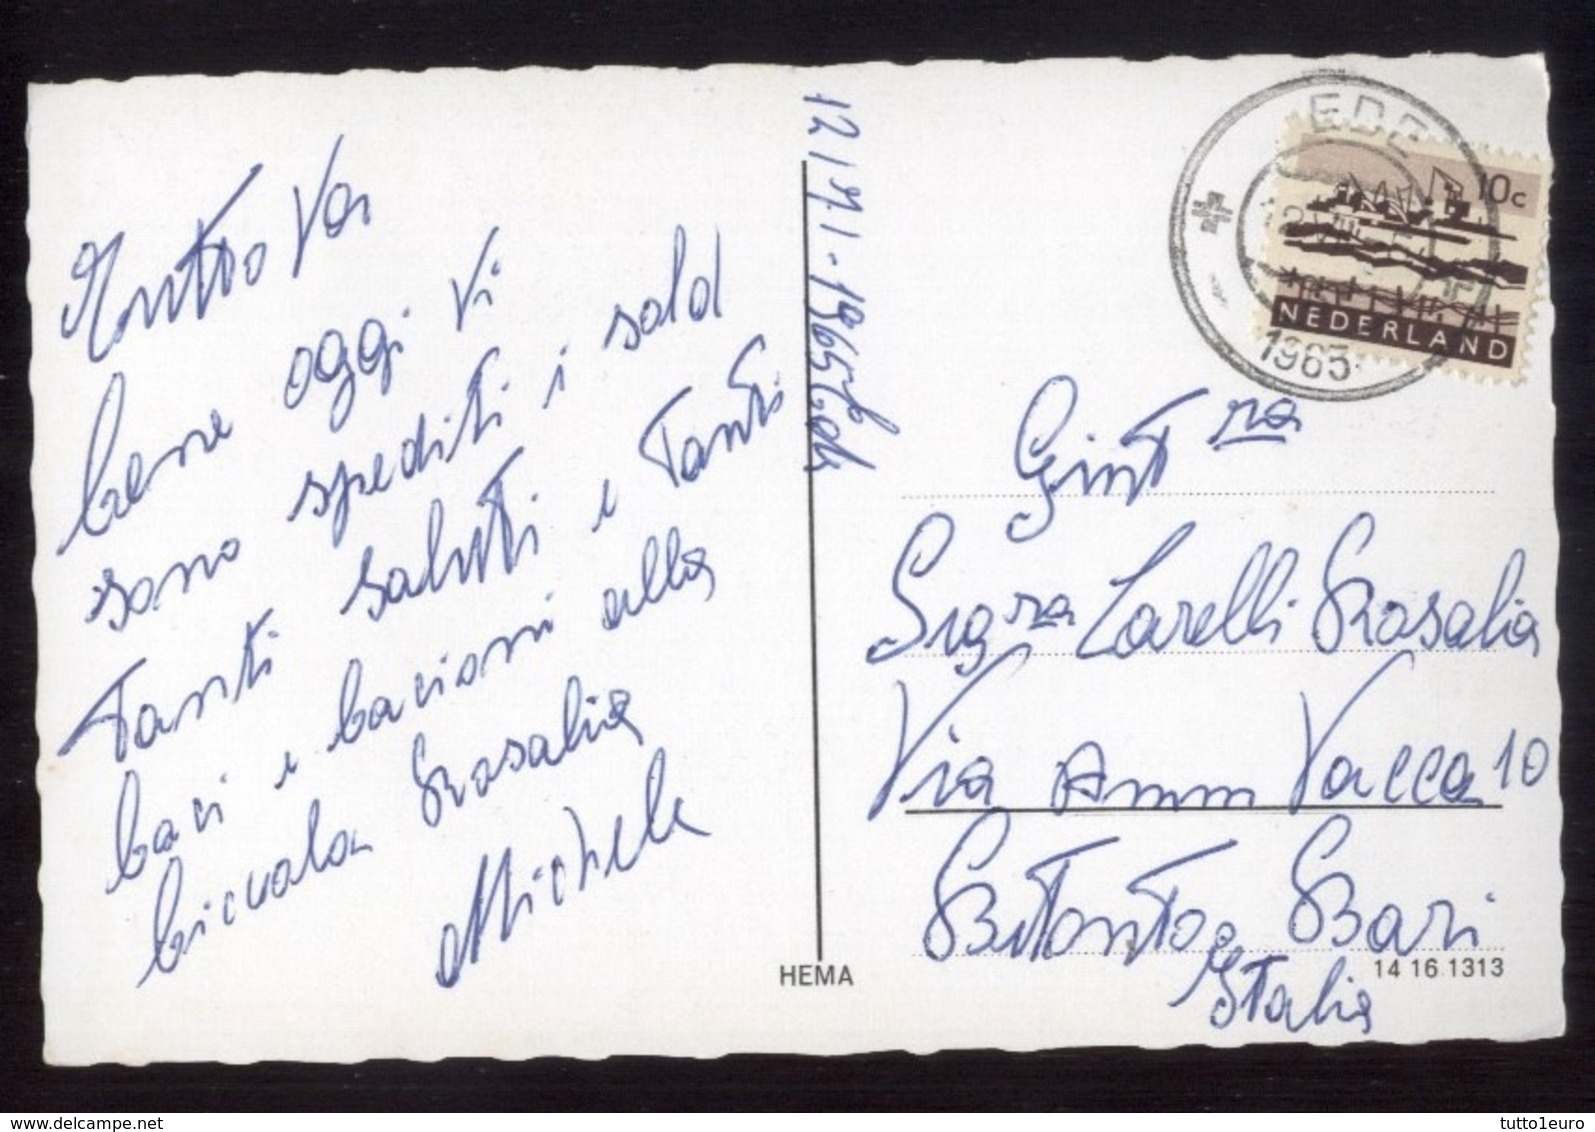 Tutto va
bene oggi vi
sono spediti i sold
Tanti saluti e Tanti
baci e bacioni alla
piccola Rosalia
Michele
1965
Gent ra
Sig ra Carelli Rosalia
Via Amm Vacca 10
Bitonto Bari
Italia
HEMA
14 16 1313
EDE
1965
10c
NEDERLAND
www.delcampe.net
tutto1euro